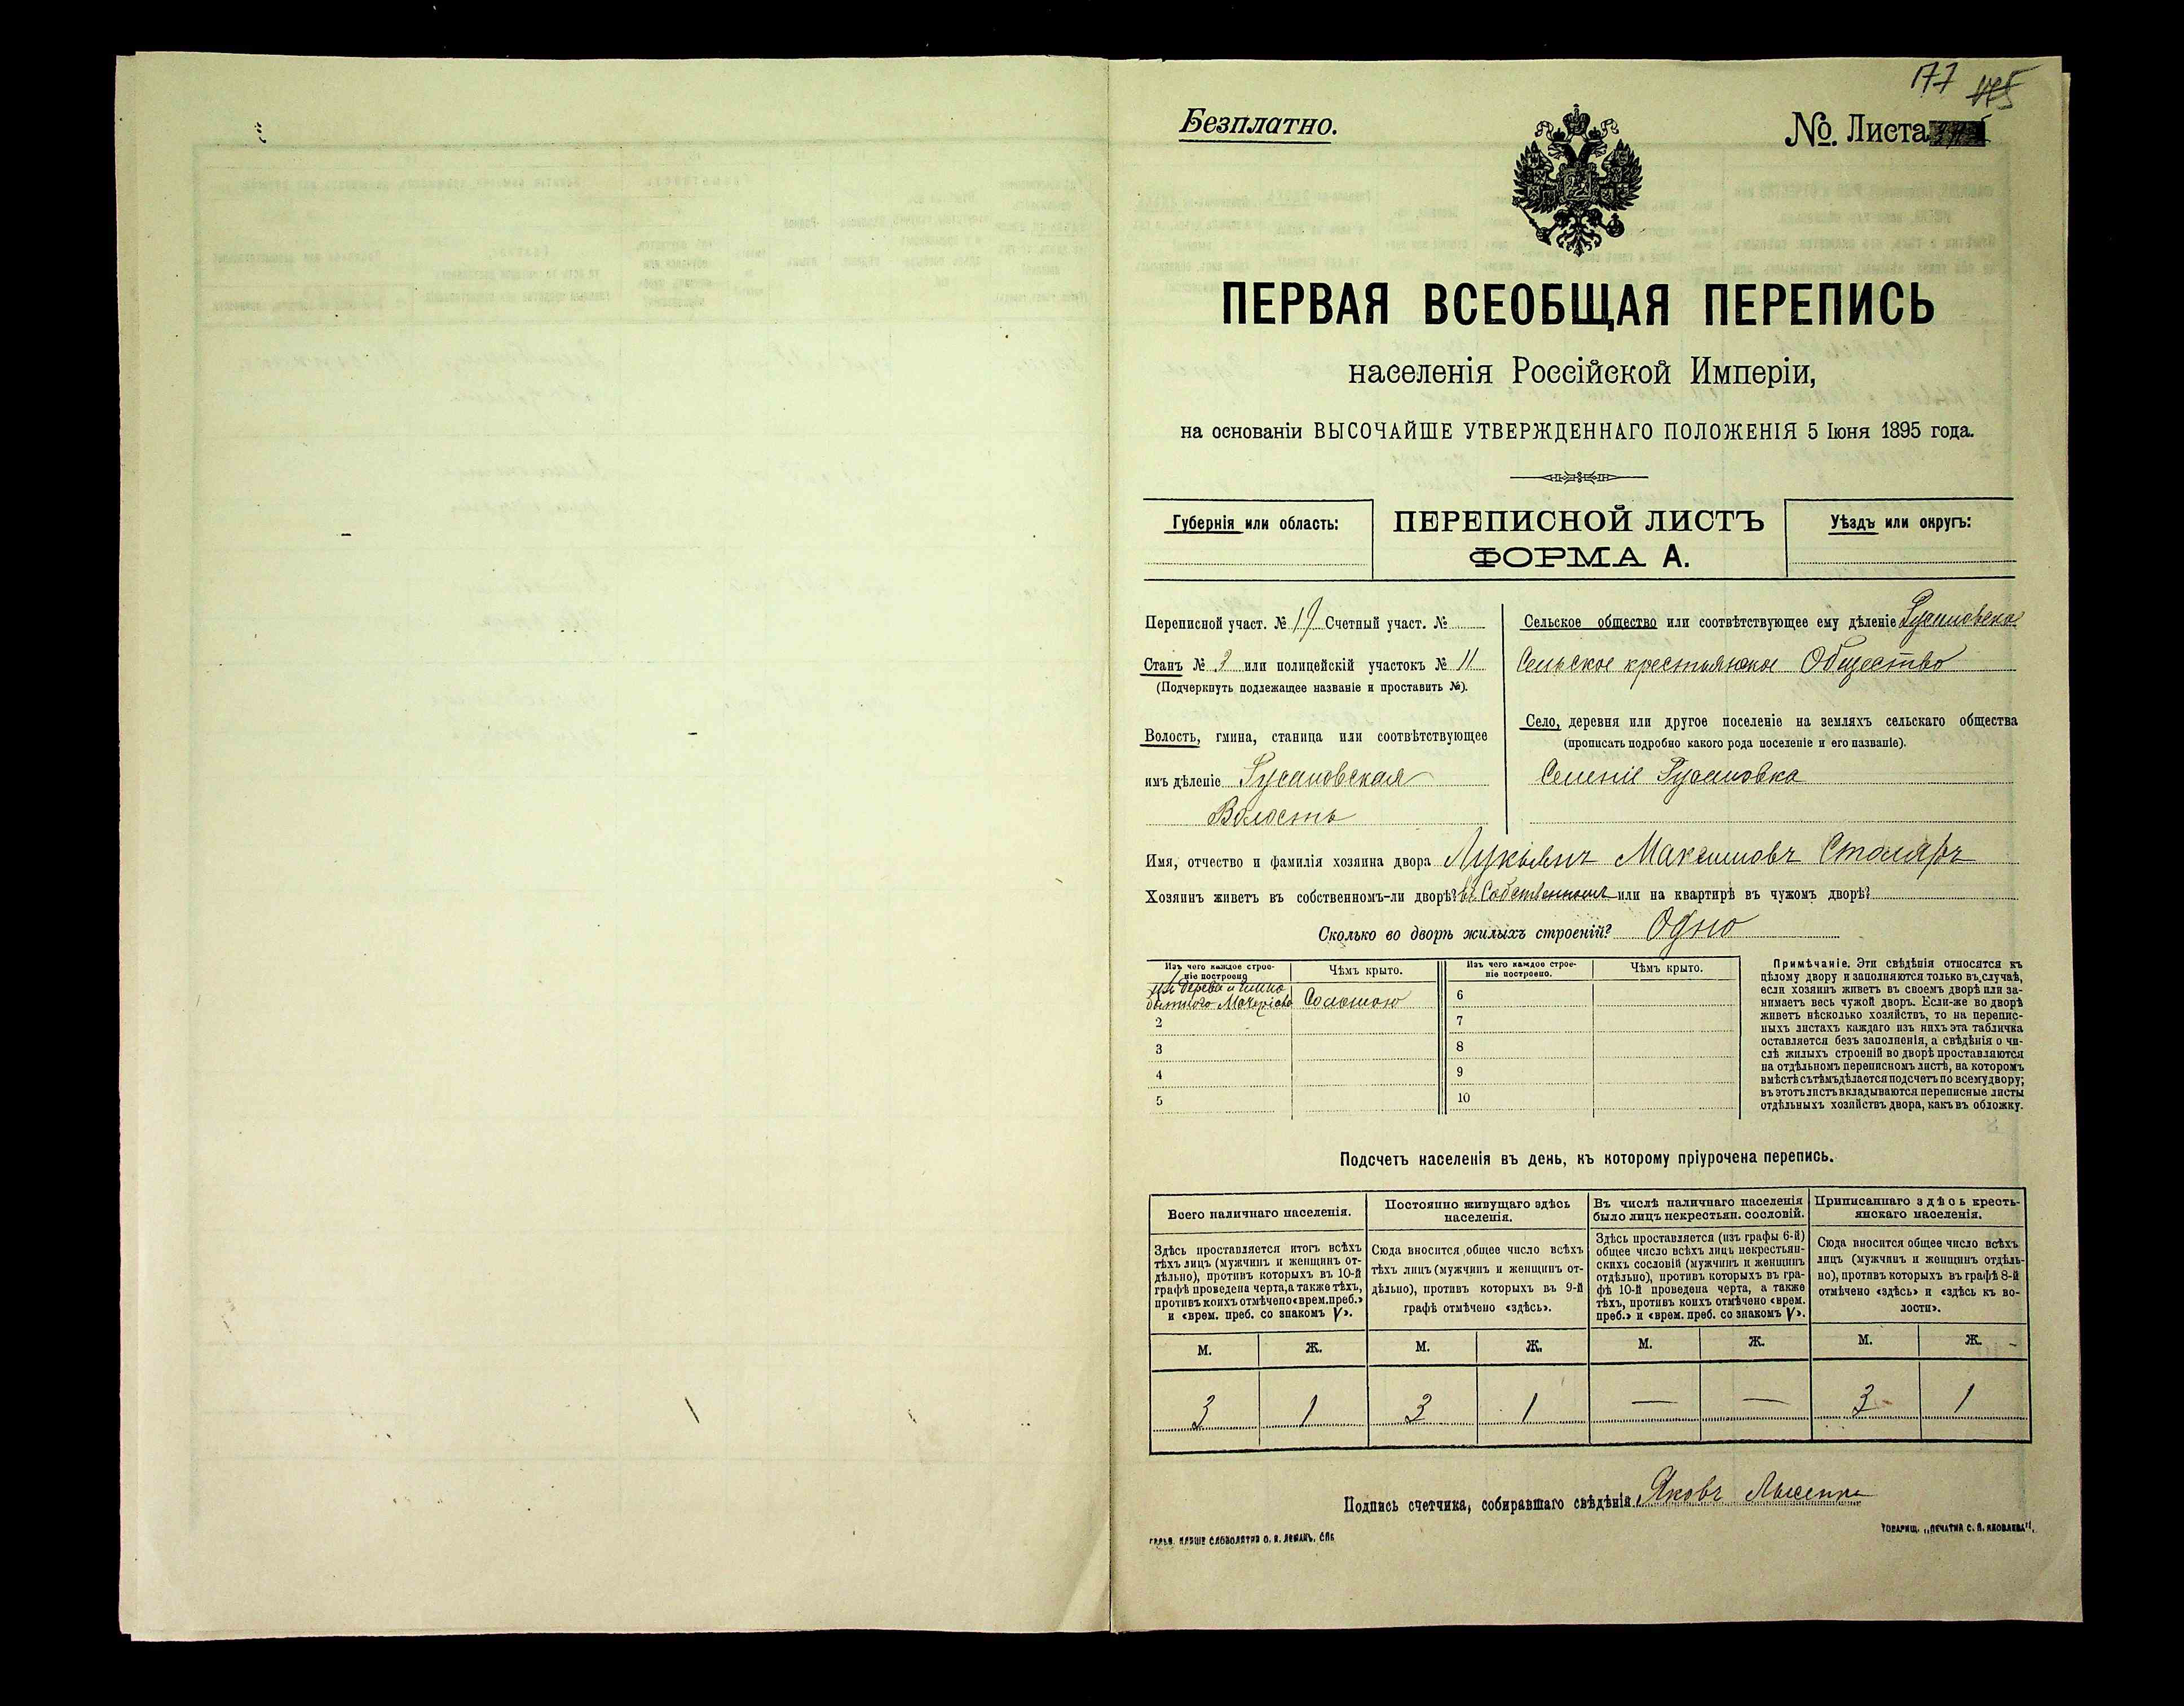 177 175
Безплатно.
№. Листа
ПЕРВАЯ ВСЕОБЩАЯ ПЕРЕПИСЬ
населенія Россійской Имперіи,
на основаніи ВЫСОЧАЙШЕ УТВЕРЖДЕННАГО ПОЛОЖЕНІЯ 5 Іюня 1895 года.
Губернія или область:
ПЕРЕПИСНОЙ ЛИСТЪ
ФОРМА А.
Уѣздъ или округъ:
Переписной участ. № 19 Счетный участ. №
Станъ № 3 или полицейскій участокъ № 11
(Подчеркнуть подлежащее названіе и проставить №).
Волость, гмина, станица или соотвѣтствующее
имъ дѣленіе Русановская
Волость
Сельское общество или соотвѣтствующее ему дѣленіе Русановское
Сельское крестьянское Общество
Село, деревня или другое поселеніе на земляхъ сельскаго общества
(прописать подробно какого рода поселеніе и его названіе).
Селеніе Русановка
Имя, отчество и фамилія хозяина двора Лукьянъ Максимовъ Столяръ
Хозяинъ живетъ въ собственномъ-ли дворѣ? въ Собственномъ или на квартирѣ въ чужомъ дворѣ?
Сколько во дворѣ жилыхъ строеній? Одно
Изъ чего каждое строе-
ніе построено
Чѣмъ крыто.
Изъ чего каждое строе-
ніе построено.
Чѣмъ крыто.
изъ дерева и глино
битного Матеріала Соломою
2
3
4
5
6
7
8
9
10
Примѣчаніе. Эти свѣдѣнія относятся къ
цѣлому двору и заполняются только въ случаѣ,
если хозяинъ живетъ въ своемъ дворѣ или за-
нимаетъ весь чужой дворъ. Если-же во дворѣ
живетъ нѣсколько хозяйствъ, то на перепис-
ныхъ листахъ каждаго изъ нихъ эта табличка
оставляется безъ заполненія, а свѣдѣнія о чи-
слѣ жилыхъ строеній во дворѣ проставляются
на отдѣльномъ переписномъ листѣ, на которомъ
вмѣстѣ съ тѣмъ дѣлается подсчетъ по всему двору;
въ этотъ листъ вкладываются переписные листы
отдѣльныхъ хозяйствъ двора, какъ въ обложку.
Подсчетъ населенія въ день, къ которому пріурочена перепись.
Всего наличнаго населенія.
Здѣсь проставляется итогъ всѣхъ
тѣхъ лицъ (мужчинъ и женщинъ от-
дѣльно), противъ которыхъ въ 10-й
графѣ проведена черта, а также тѣхъ,
противъ коихъ отмѣчено «врем. преб.»
и «врем. преб. со знакомъ V».
Постоянно живущаго здѣсь
населенія.
Сюда вносится общее число всѣхъ
тѣхъ лицъ (мужчинъ и женщинъ от-
дѣльно), противъ которыхъ въ 9-й
графѣ отмѣчено «здѣсь».
Въ числѣ наличнаго населенія
было лицъ некрестьян. сословій.
Здѣсь проставляется (изъ графы 6-й)
общее число всѣхъ лицъ некрестьян-
скихъ сословій (мужчинъ и женщинъ
отдѣльно), противъ которыхъ въ гра-
фѣ 10-й проведена черта, а также
тѣхъ, противъ коихъ отмѣчено «врем.
преб.» и «врем. преб. со знакомъ V».
Приписаннаго здѣсь кресть-
янскаго населенія.
Сюда вносится общее число всѣхъ
лицъ (мужчинъ и женщинъ отдѣль-
но), противъ которыхъ въ графѣ 8-й
отмѣчено «здѣсь» и «здѣсь къ во-
лости».
М. Ж. М. Ж. М. Ж. М. Ж.
3 1 3 1 — — 3 1
Подпись счетчика, собиравшаго свѣдѣнія Яковъ
ТОВАРИЩ. „ПЕЧАТНЯ С. П. ЯКОВЛЕВА“.